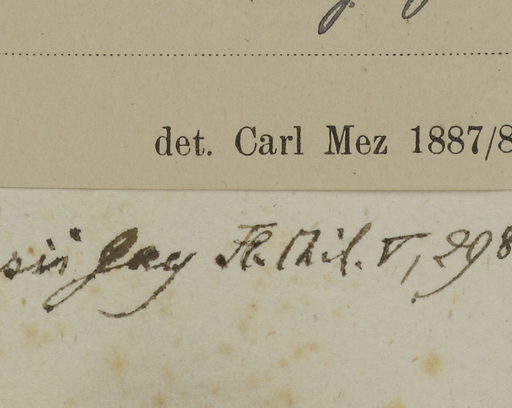 det. Carl Mez 1887/8
sis Gay Fl. Chil. V, 298